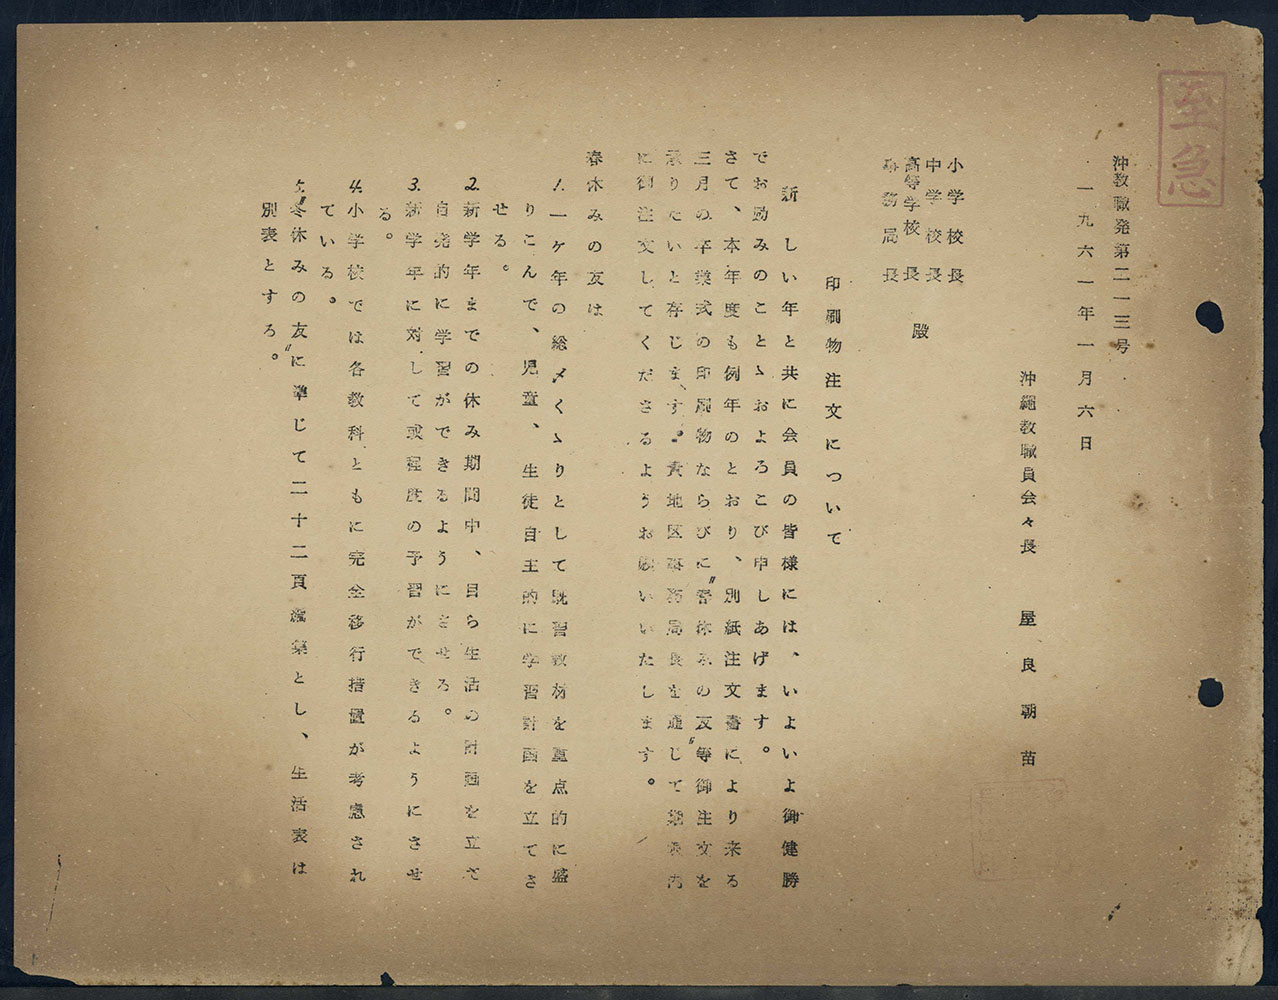 至急
沖教職発第二一三号
一九六一年一月六日
沖縄教職員会々長 屋良朝苗
小学校長
中学校長
高等学校長
事務局長
殿
印刷物注文について
新しい年と共に会員の皆様には、いよいよ御健勝
でお励みのことゝおよろこび申しあげます。
さて、本年度も例年のとおり、別紙注文書により来る
三月の卒業式の印刷物ならびに〃春休みの友〃等御注文を
承りたいと存じます。貴地区事務局長を通じて期限内
に御注文してくださるようお願いいたします。
春休みの友は
1. 一ヶ年の総〆くゝりとして既習教材を重点的に盛
りこんで、児童、生徒自主的に学習計画を立てさ
せる。
2. 新学年までの休み期間中、自ら生活の計画を立て
自発的に学習ができるようにさせる。
3. 新学年に対して或程度の予習ができるようにさせ
る。
4. 小学校では各教科ともに完全移行措置が考慮され
ている。
5. 〃冬休みの友〃に準じて二十二頁編集とし、生活表は
別表とする。